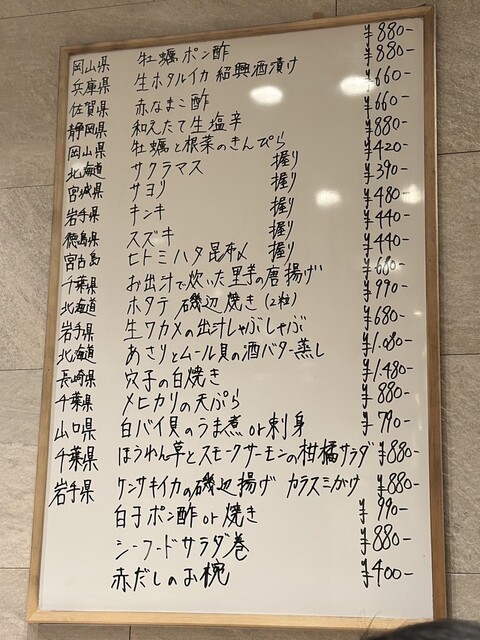 岡山県 牡蠣ポン酢 ¥880-
兵庫県 生ホタルイカ 紹興酒漬け ¥880-
佐賀県 赤なまこ酢 ¥660-
静岡県 和えたて生塩辛 ¥660-
岡山県 牡蠣と根菜のきんぴら ¥880-
北海道 サクラマス 握り ¥420-
宮城県 サヨリ 握り ¥390-
岩手県 キンキ 握り ¥480-
徳島県 スズキ 握り ¥440-
宮古島 ヒトミハタ昆布〆 握り ¥440-
千葉県 お出汁で炊いた里芋の唐揚げ ¥660-
北海道 ホタテ 磯辺焼き(2粒) ¥990-
岩手県 生ワカメの出汁しゃぶしゃぶ ¥680-
北海道 あさりとムール貝の酒バター蒸し ¥1.080-
長崎県 穴子の白焼き ¥1.480-
千葉県 メヒカリの天ぷら ¥880-
山口県 白バイ貝のうま煮or刺身 ¥790-
千葉県 ほうれん草とスモークサーモンの柑橘サラダ ¥880-
岩手県 ケンサキイカの磯辺揚げ カラスミがけ ¥880-
白子ポン酢or焼き ¥990-
シーフードサラダ巻 ¥880-
赤だしのお椀 ¥400-